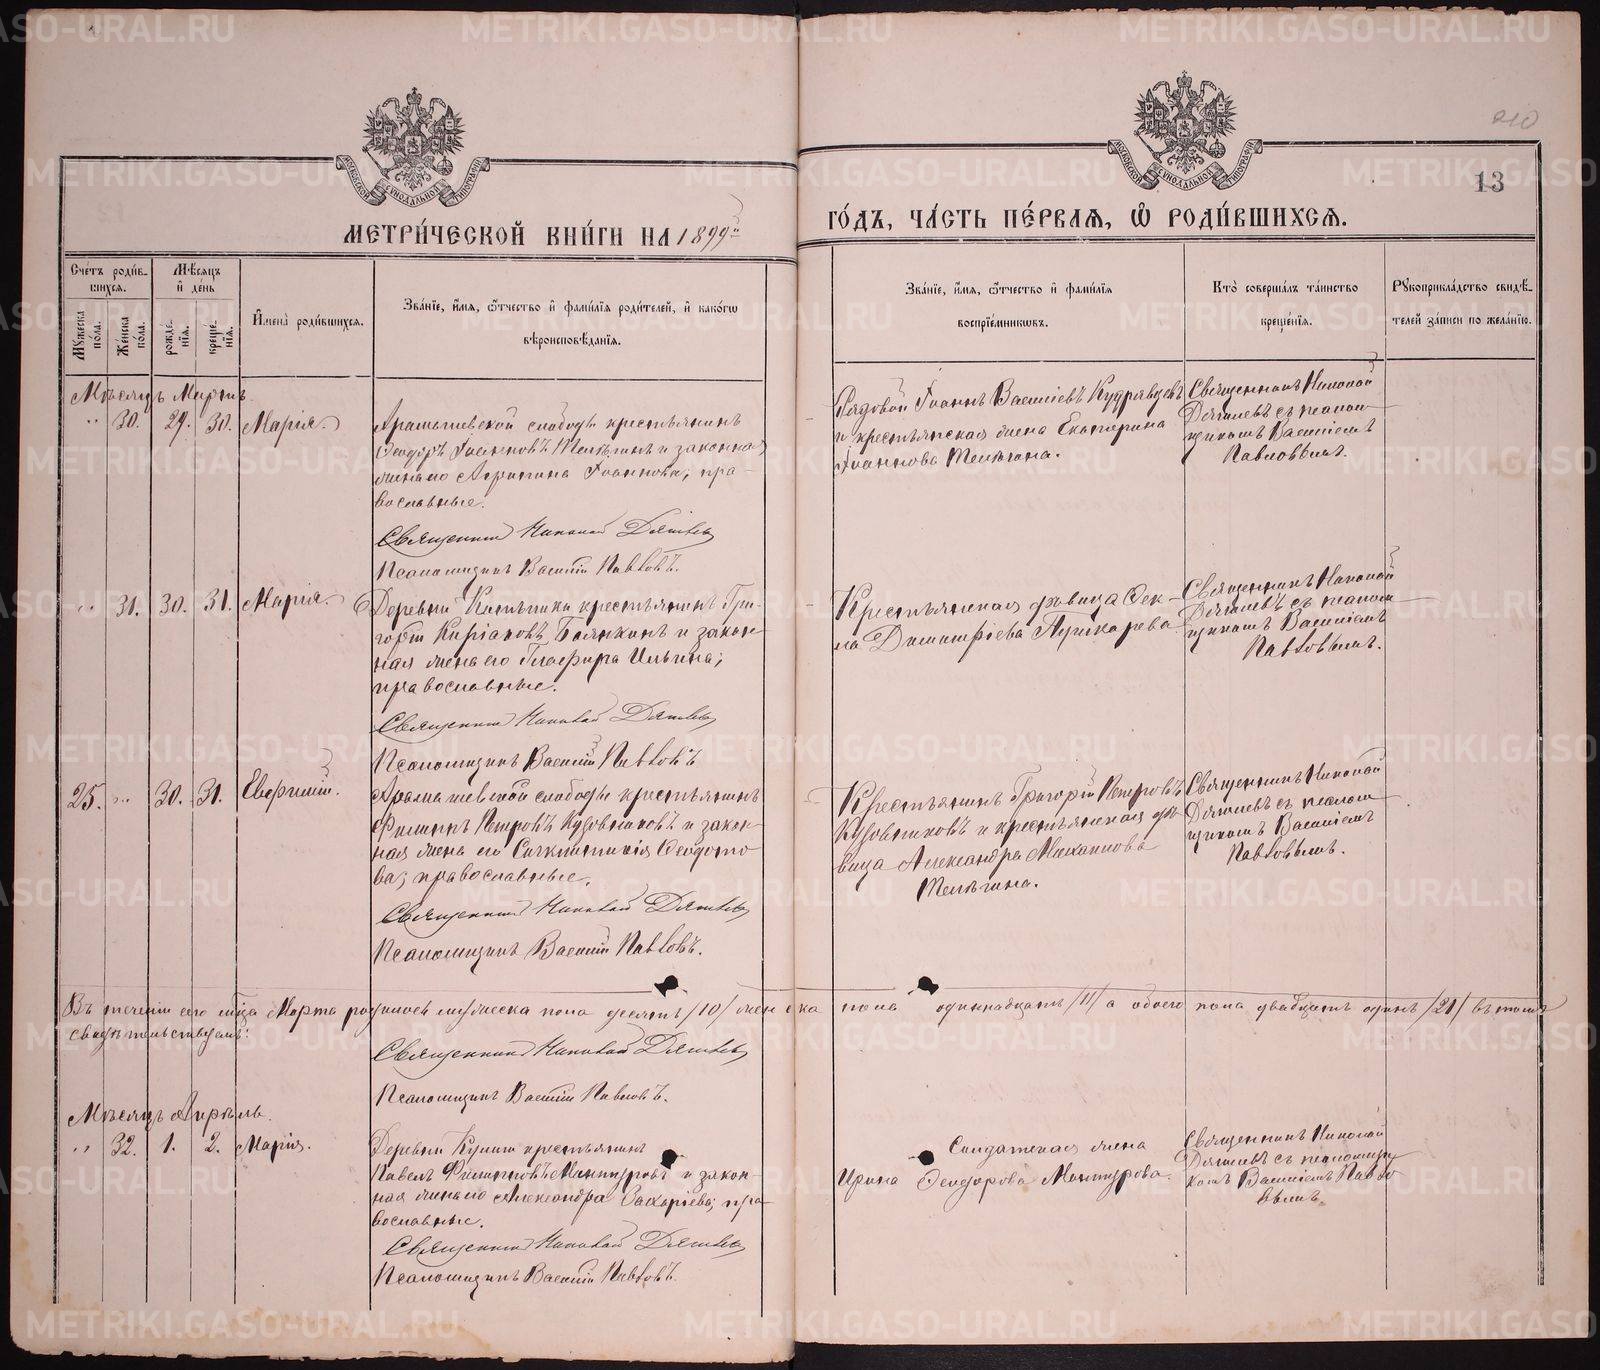 210
13
МОСКОВСКОЙ СѴНОДАЛЬНОЙ ТИПОГРАФІИ
МОСКОВСКОЙ СѴНОДАЛЬНОЙ ТИПОГРАФІИ
МЕТРИ́ЧЕСКОЙ КНИ́ГИ НА 1899й
ГО́ДЪ, ЧА́СТЬ ПЕ́РВАЯ, Ѽ РОДИ́ВШИХСЯ.
Сче́тъ роди́в-
шихся.
Мꙋ́жеска пола.
Же́нска по́ла.
Мѣ́сяцъ и҆ де́нь
рожде́-нія.
креще́-нія.
И҆мена̀ роди́вшихся.
Зва́ніе, и҆́мя, ѻ҆́тчество и҆ фами́лія роди́телей, и҆ како́гѡ
вѣроисповѣ́данія.
Зва́ніе, и҆́мя, ѻ҆́тчество и҆ фами́лія
воспріе́мниковъ.
Кто̀ соверша́лъ та́инство
креще́нія.
Рꙋкоприкла́дство свидѣ́-
телей за́писи по жела́нію.
Мѣсяцъ Мартъ.
" 30. 29. 30. Марія.
Арамашевской слободы крестьянинъ
Ѳеодоръ Іоанновъ Телѣгинъ и законная
жена его Агрипина Іоаннова, пра-
вославные.
Священникъ Николай
Псаломщикъ Василій Павловъ.
Рядовой Іоаннъ Василіевъ Кудрявцевъ
и крестьянская жена Екатерина
Іоаннова Телѣгина.
Священникъ Николай
съ псалом-
щикомъ Василіемъ
Павловымъ.
" 31. 30. 31. Марія.
Деревни крестьянинъ Гри-
горій Киріаковъ и закон-
ная жена его Глафира Ильина;
православные.
Священникъ Николай
Псаломщикъ Василій Павловъ
Крестьянская дѣвица Ѳек-
ла Димитріева Пушкарева
Священникъ Николай
съ псалом-
щикомъ Василіемъ
Павловымъ.
25. " 30. 31. Евѳимій.
Арамашевской слободы крестьянинъ
Филиппъ Петровъ Кузовниковъ и закон-
ная жена его Ѳеодото-
ва; православные.
Священникъ Николай
Псаломщикъ Василій Павловъ.
Крестьянинъ Григорій Петровъ
Кузовниковъ и крестьянская дѣ-
вица Александра Михаилова
Телѣгина.
Священникъ Николай
съ псалом-
щикомъ Василіемъ
Павловымъ.
Въ теченіи сего м-ца Марта родилось мужеска пола десять /10/ женска пола одиннадцать /11/ а обоего пола двадцать одинъ /21/ въ томъ
свидѣтельствуемъ:
Священникъ Николай
Псаломщикъ Василій Павловъ.
Мѣсяцъ Апрѣль.
" 32. 1. 2. Марія.
Деревни крестьянинъ
Павелъ Филипповъ Мантуровъ и закон-
ная жена его Александра Захаріева; пра-
вославные.
Священникъ Николай
Псаломщикъ Василій Павловъ.
Солдатская жена
Ирина Ѳеодорова Мантурова.
Священникъ Николай
съ псаломщи-
комъ Василіемъ Павло-
вымъ.
METRIKI.GASO-URAL.RU